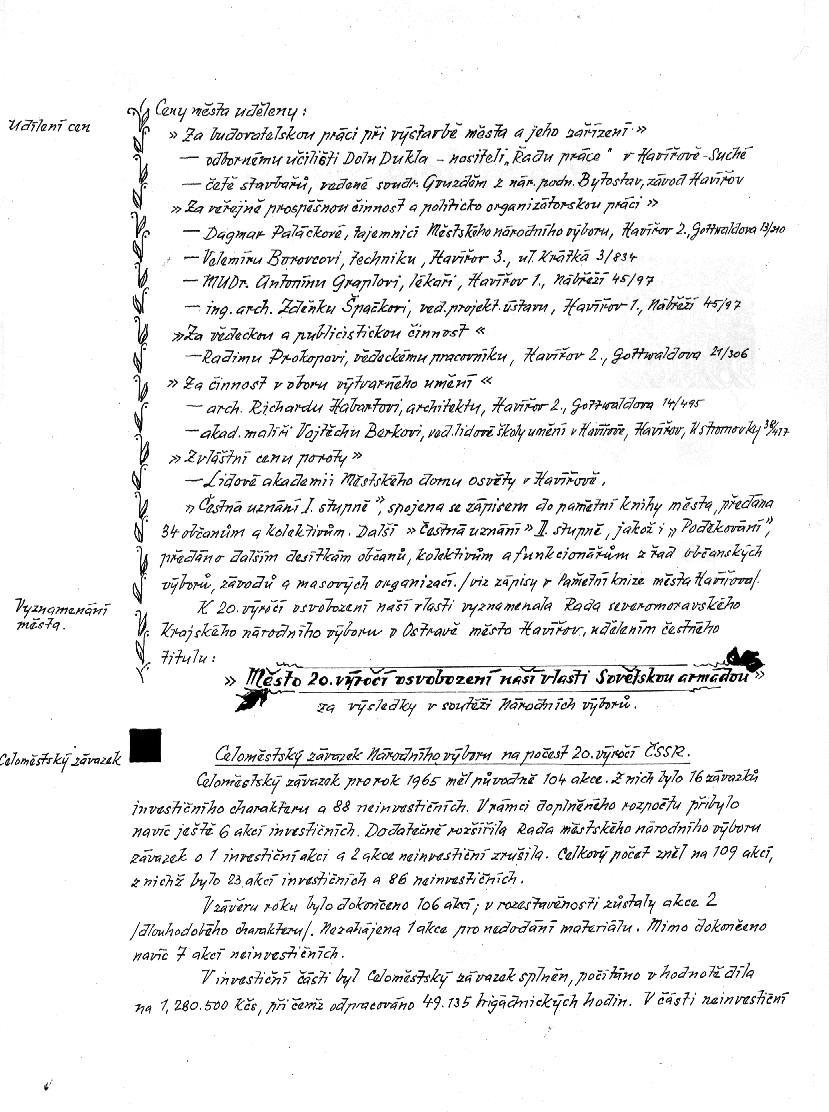 Udílení cen
Ceny města uděleny :
» Za budovatelskou práci při výstarbě města a jeho zařízení »
— odbornému učilišti Dolu Dukla - nositeli „Řadu práce" v Havířově-Suché
— četě stavbařů, vedené soudr. Gvuzděm z nár. podn. Bytostav, závod Havířov
» Za veřejně prospěšnou činnost a politicko organizátorskou práci »
— Dagmar Paláčkové, tajemnici Městského národního výboru, Havířov 2., Gottwaldova 13/210
— Velemíru Borovcovi, techniku, Havířov 3., ul. Krátká 3/834
— MUDr. Antonínu Graplovi, lékaři, Havířov 1., Nábřeží 45/97
— ing. arch. Zdeňku Špačkovi, ved. projekt. ústavu, Havířov 1., Nábřeží 45/97
» Za vědeckou a publicistickou činnost «
— Radimu Prokopovi, vědeckému pracovníku, Havířov 2., Gottwaldova 21/306
» Za činnost v oboru výtvarného umění «
— arch. Richardu Habartovi, architektu, Havířov 2., Gottwaldova 14/495
— akad. malíři Vojtěchu Berkovi, ved. lidové školy umění v Havířově, Havířov, U stromovky
» Zvláštní cenu poroty »
— Lidové akademii Městského domu osvěty v Havířově.
» Čestná uznání I. stupně", spojena se zápisem do pamětní knihy města, předána
34 občanům a kolektivům. Další » Čestná uznání » II. stupně, jakož i „ Poděkování",
předáno dalším desítkám občanů, kolektivům a funkcionářům z řad občanských
výborů, závodů a masových organizací. /viz zápisy v Pamětní knize města Havířova/.
Vyznamenání
města.
K 20. výročí osvobození naší vlasti vyznamenala Rada severomoravského
Krajského národního výboru v Ostravě město Havířov, udělením čestného
titulu :
» Město 20. výročí osvobození naší vlasti Sovětskou armádou »
za výsledky v soutěži Národních výborů.
Celoměstský závazek
Celoměstský závazek Národního výboru na počest 20. výročí ČSSR.
Celoměstský závazek pro rok 1965 měl původně 104 akce. Z nich bylo 16 závazků
investičního charakteru a 88 neinvestičních. V rámci doplněného rozpočtu přibylo
navíc ještě 6 akcí investičních. Dodatečně rozšířila Rada městského národního výboru
závazek o 1 investiční akci a 2 akce neinvestiční zrušila. Celkový počet zněl na 109 akcí,
z nichž bylo 23 akcí investičních a 86 neinvestičních.
V závěru roku bylo dokončeno 106 akcí; v rozestavěnosti zůstaly akce 2
/dlouhodobého charakteru/. Nezahájena 1 akce pro nedodání materiálu. Mimo dokončeno
navíc 7 akcí neinvestičních.
V investiční části byl Celoměstský závazek splněn, počítáno v hodnotě díla
na 1,280.500 Kčs, při čemž odpracováno 49.135 brigádnických hodin. V části neinvestiční